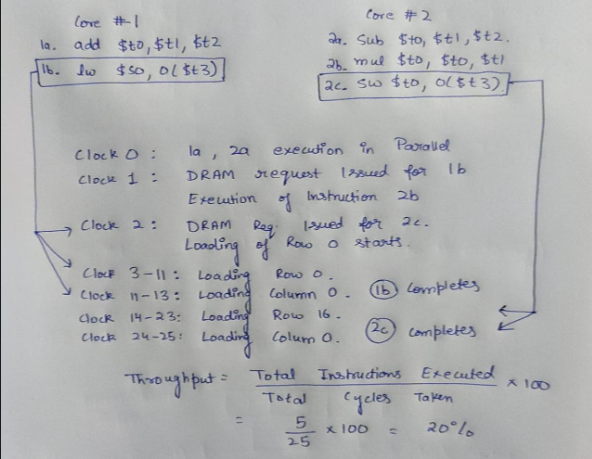 Core #1
1a. add $t0, $t1, $t2
1b. lw $s0, 0($t3)
Core #2
2a. Sub $t0, $t1, $t2.
2b. mul $t0, $t0, $t1
2c. Sw $t0, 0($t3)
Clock 0 : 1a, 2a execution in Parallel
Clock 1 : DRAM request Issued for 1b
Execution of Instruction 2b
Clock 2 : DRAM Req. Issued for 2c.
Loading of Row 0 starts.
Clock 3-11 : Loading Row 0.
Clock 11-13 : Loading Column 0. 1b Completes
Clock 14-23 : Loading Row 16.
Clock 24-25 : Loading Colum 0. 2c Completes
Throughput = Total Instructions Executed / Total Cycles Taken × 100
= 5/25 × 100 = 20%